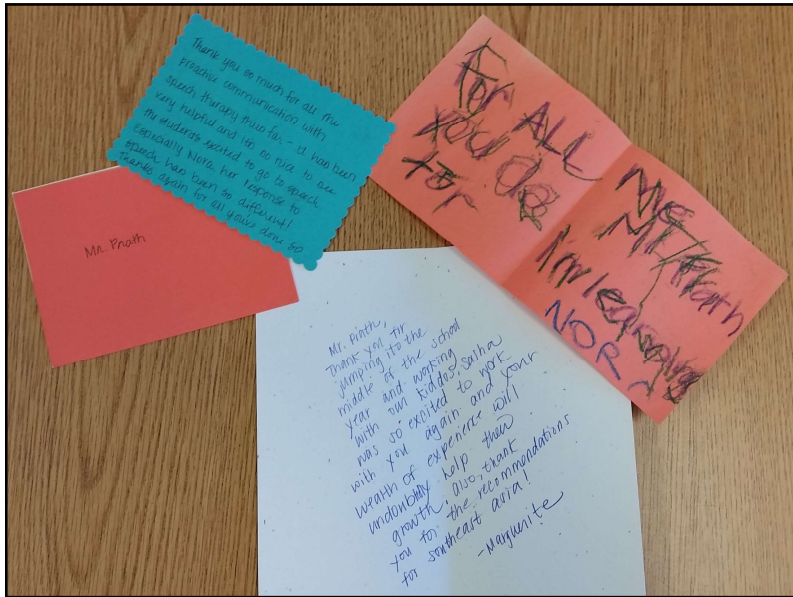 Thank you so much for all the
proactive communication with
speech therapy thus far - it has been
very helpful and it's so nice to see
the students excited to go to speech
especially Nora, her response to
speech has been so different!
Thanks again for all you've done so
Mr. Prath
For ALL
you do
for
me
Mr. Prath
I'm learning
NORA
Mr. Prath,
Thank you for
jumping into the
middle of the school
year and working
with our kiddos.
was so excited to work
with you again and your
wealth of experience will
undoubtably help their
growth, also, thank
you for the recommendations
for southeast asia!
-Marguerite